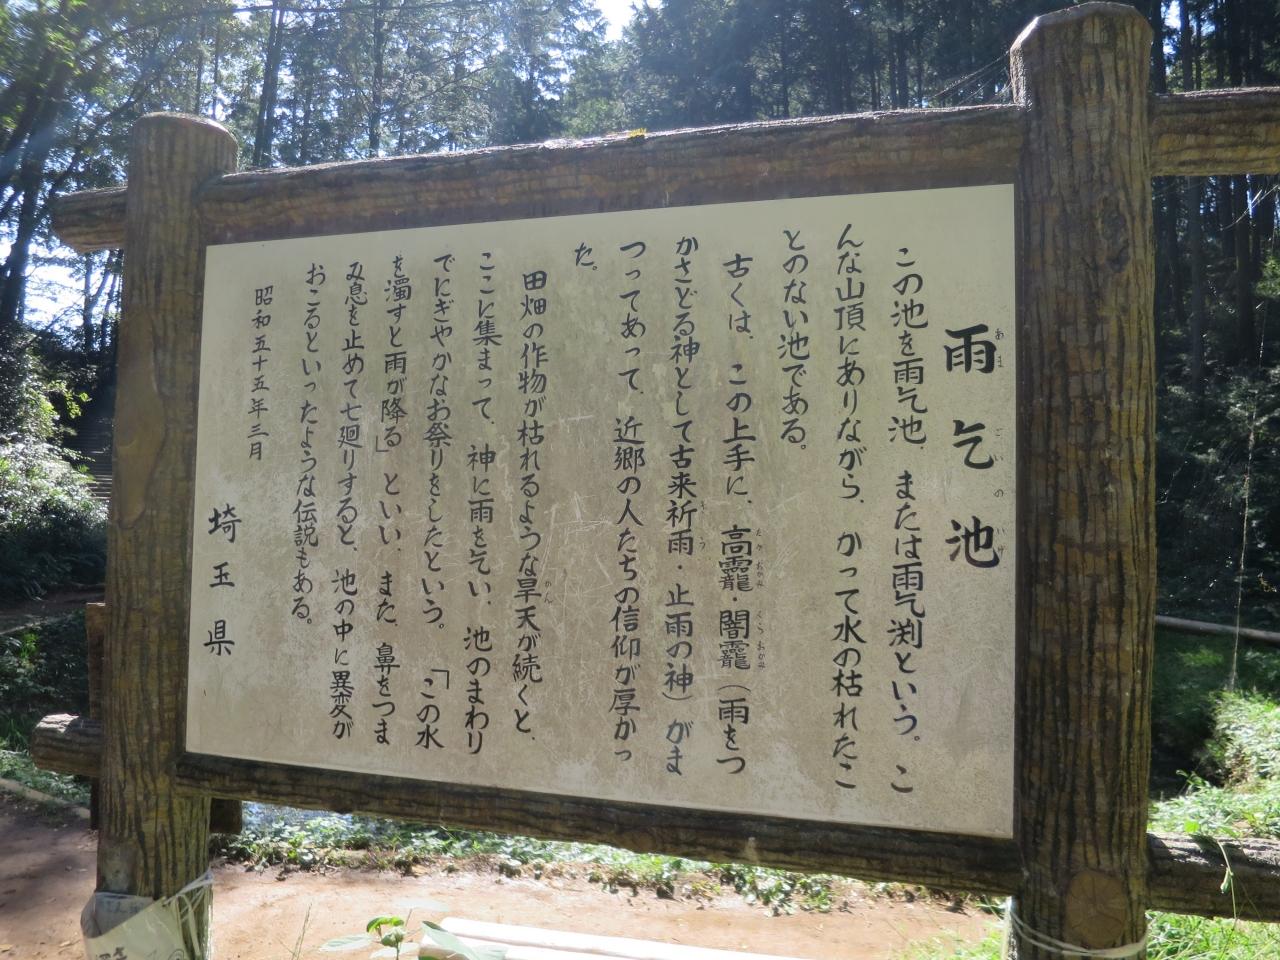 雨乞池
あまごいのいけ
この池を雨乞池、または雨乞渕という。こ
んな山頂にありながら、かって水の枯れたこ
とのない池である。
古くは、この上手に、高龗・闇龗（雨をつ
たかおかみ くらおかみ
かさどる神として古来祈雨・止雨の神）がま
きう
つってあって、近郷の人たちの信仰が厚かっ
た。
田畑の作物が枯れるような旱天が続くと、
かん
ここに集まって、神に雨を乞い、池のまわり
でにぎやかなお祭りをしたという。「この水
を濁すと雨が降る」といい、また、鼻をつま
み息を止めて七廻りすると、池の中に異変が
おこるといったような伝説もある。
昭和五十五年三月
埼玉県